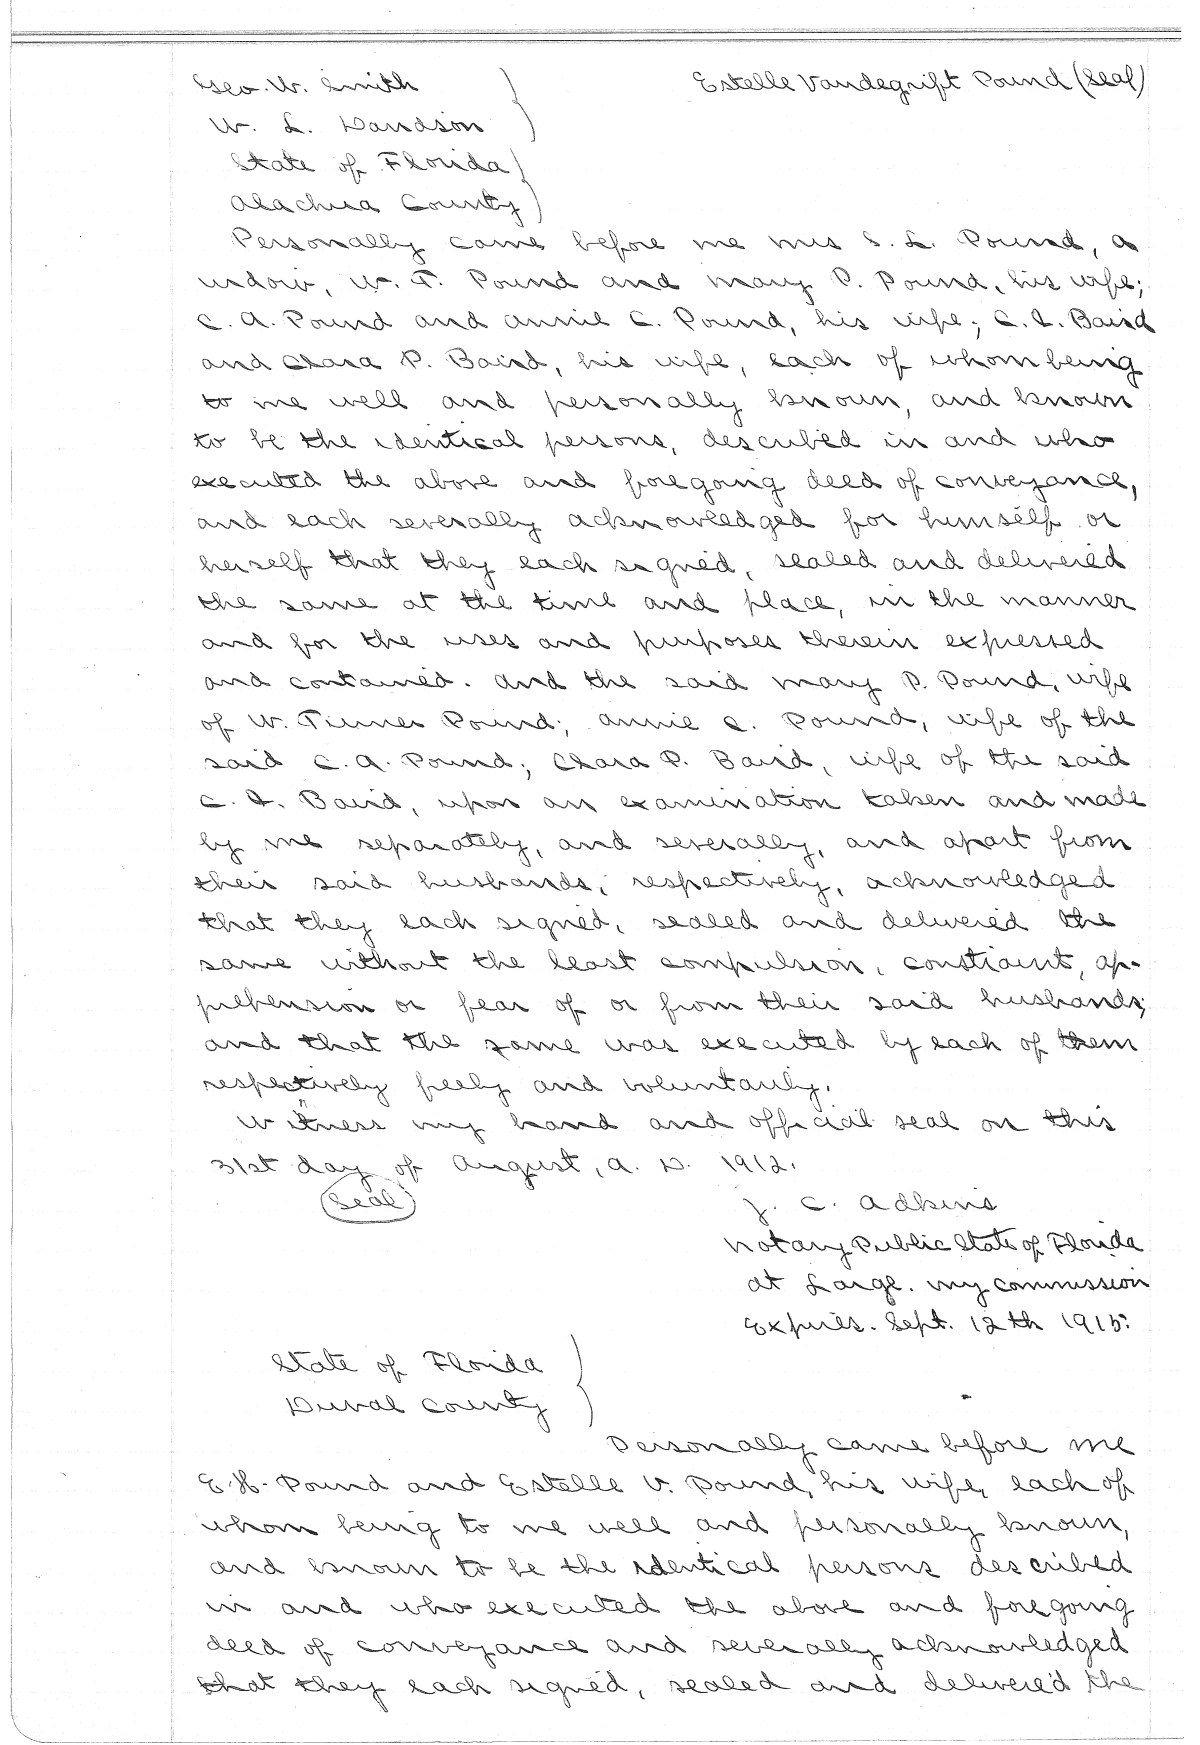 Geo. W. Smith } Estelle Vandegrift Pound (Seal)
W. L. Davidson
State of Florida }
Alachua County }
Personally came before me Mrs S. L. Pound, a
widow, W. T. Pound and Mary P. Pound, his wife;
C. A. Pound and Annie C. Pound, his wife; C. I. Baird
and Clara P. Baird, his wife, each of whom being
to me well and personally known, and known
to be the identical persons, described in and who
executed the above and foregoing deed of conveyance,
and each severally acknowledged for himself or
herself that they each signed, sealed and delivered
the same at the time and place, in the manner
and for the uses and purposes therein expressed
and contained. And the said Mary P. Pound, wife
of W. Turner Pound; Annie C. Pound, wife of the
said C. A. Pound; Clara P. Baird, wife of the said
C. I. Baird, upon an examination taken and made
by me separately, and severally, and apart from
their said husbands, respectively, acknowledged
that they each signed, sealed and delivered the
same without the least compulsion, constraint, ap-
prehension or fear of or from their said husbands;
and that the same was executed by each of them
respectively freely and voluntarily.
Witness my hand and official seal on this
31st day of August, A. D. 1912.
(Seal) J. C. Adkins
Notary Public State of Florida
at Large. My commission
Expires. Sept. 12th 1915.
State of Florida }
Duval County }
Personally came before me
E. H. Pound and Estelle V. Pound, his wife, each of
whom being to me well and personally known,
and known to be the identical persons described
in and who executed the above and foregoing
deed of conveyance and severally acknowledged
that they each signed, sealed and delivered the